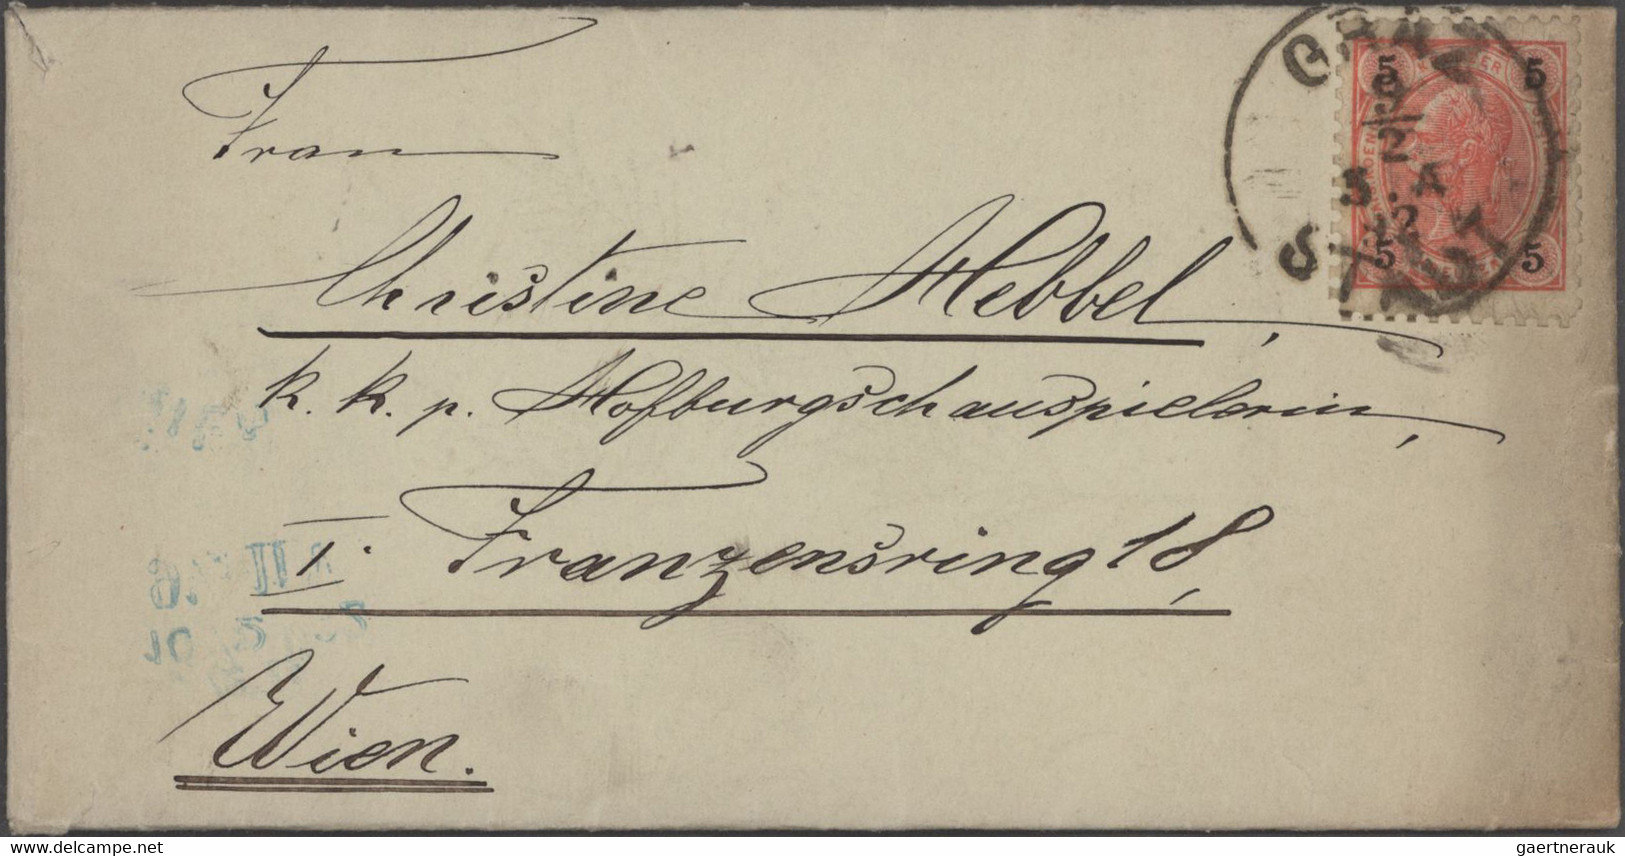 Frau
Christine Hebbel,
k. k. p. Hofburgschauspielerin,
I. Franzensring 18,
Wien.
5 5
5 5
9/2
5. A
92
STADT
gaertnerauk